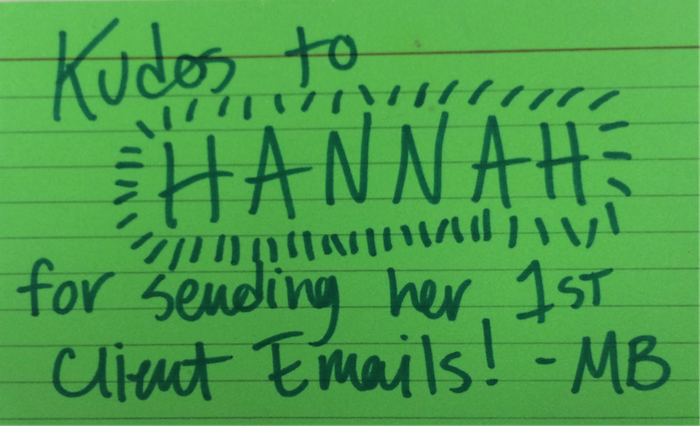 Kudos to
HANNAH
for sending her 1ST
Client Emails! -MB